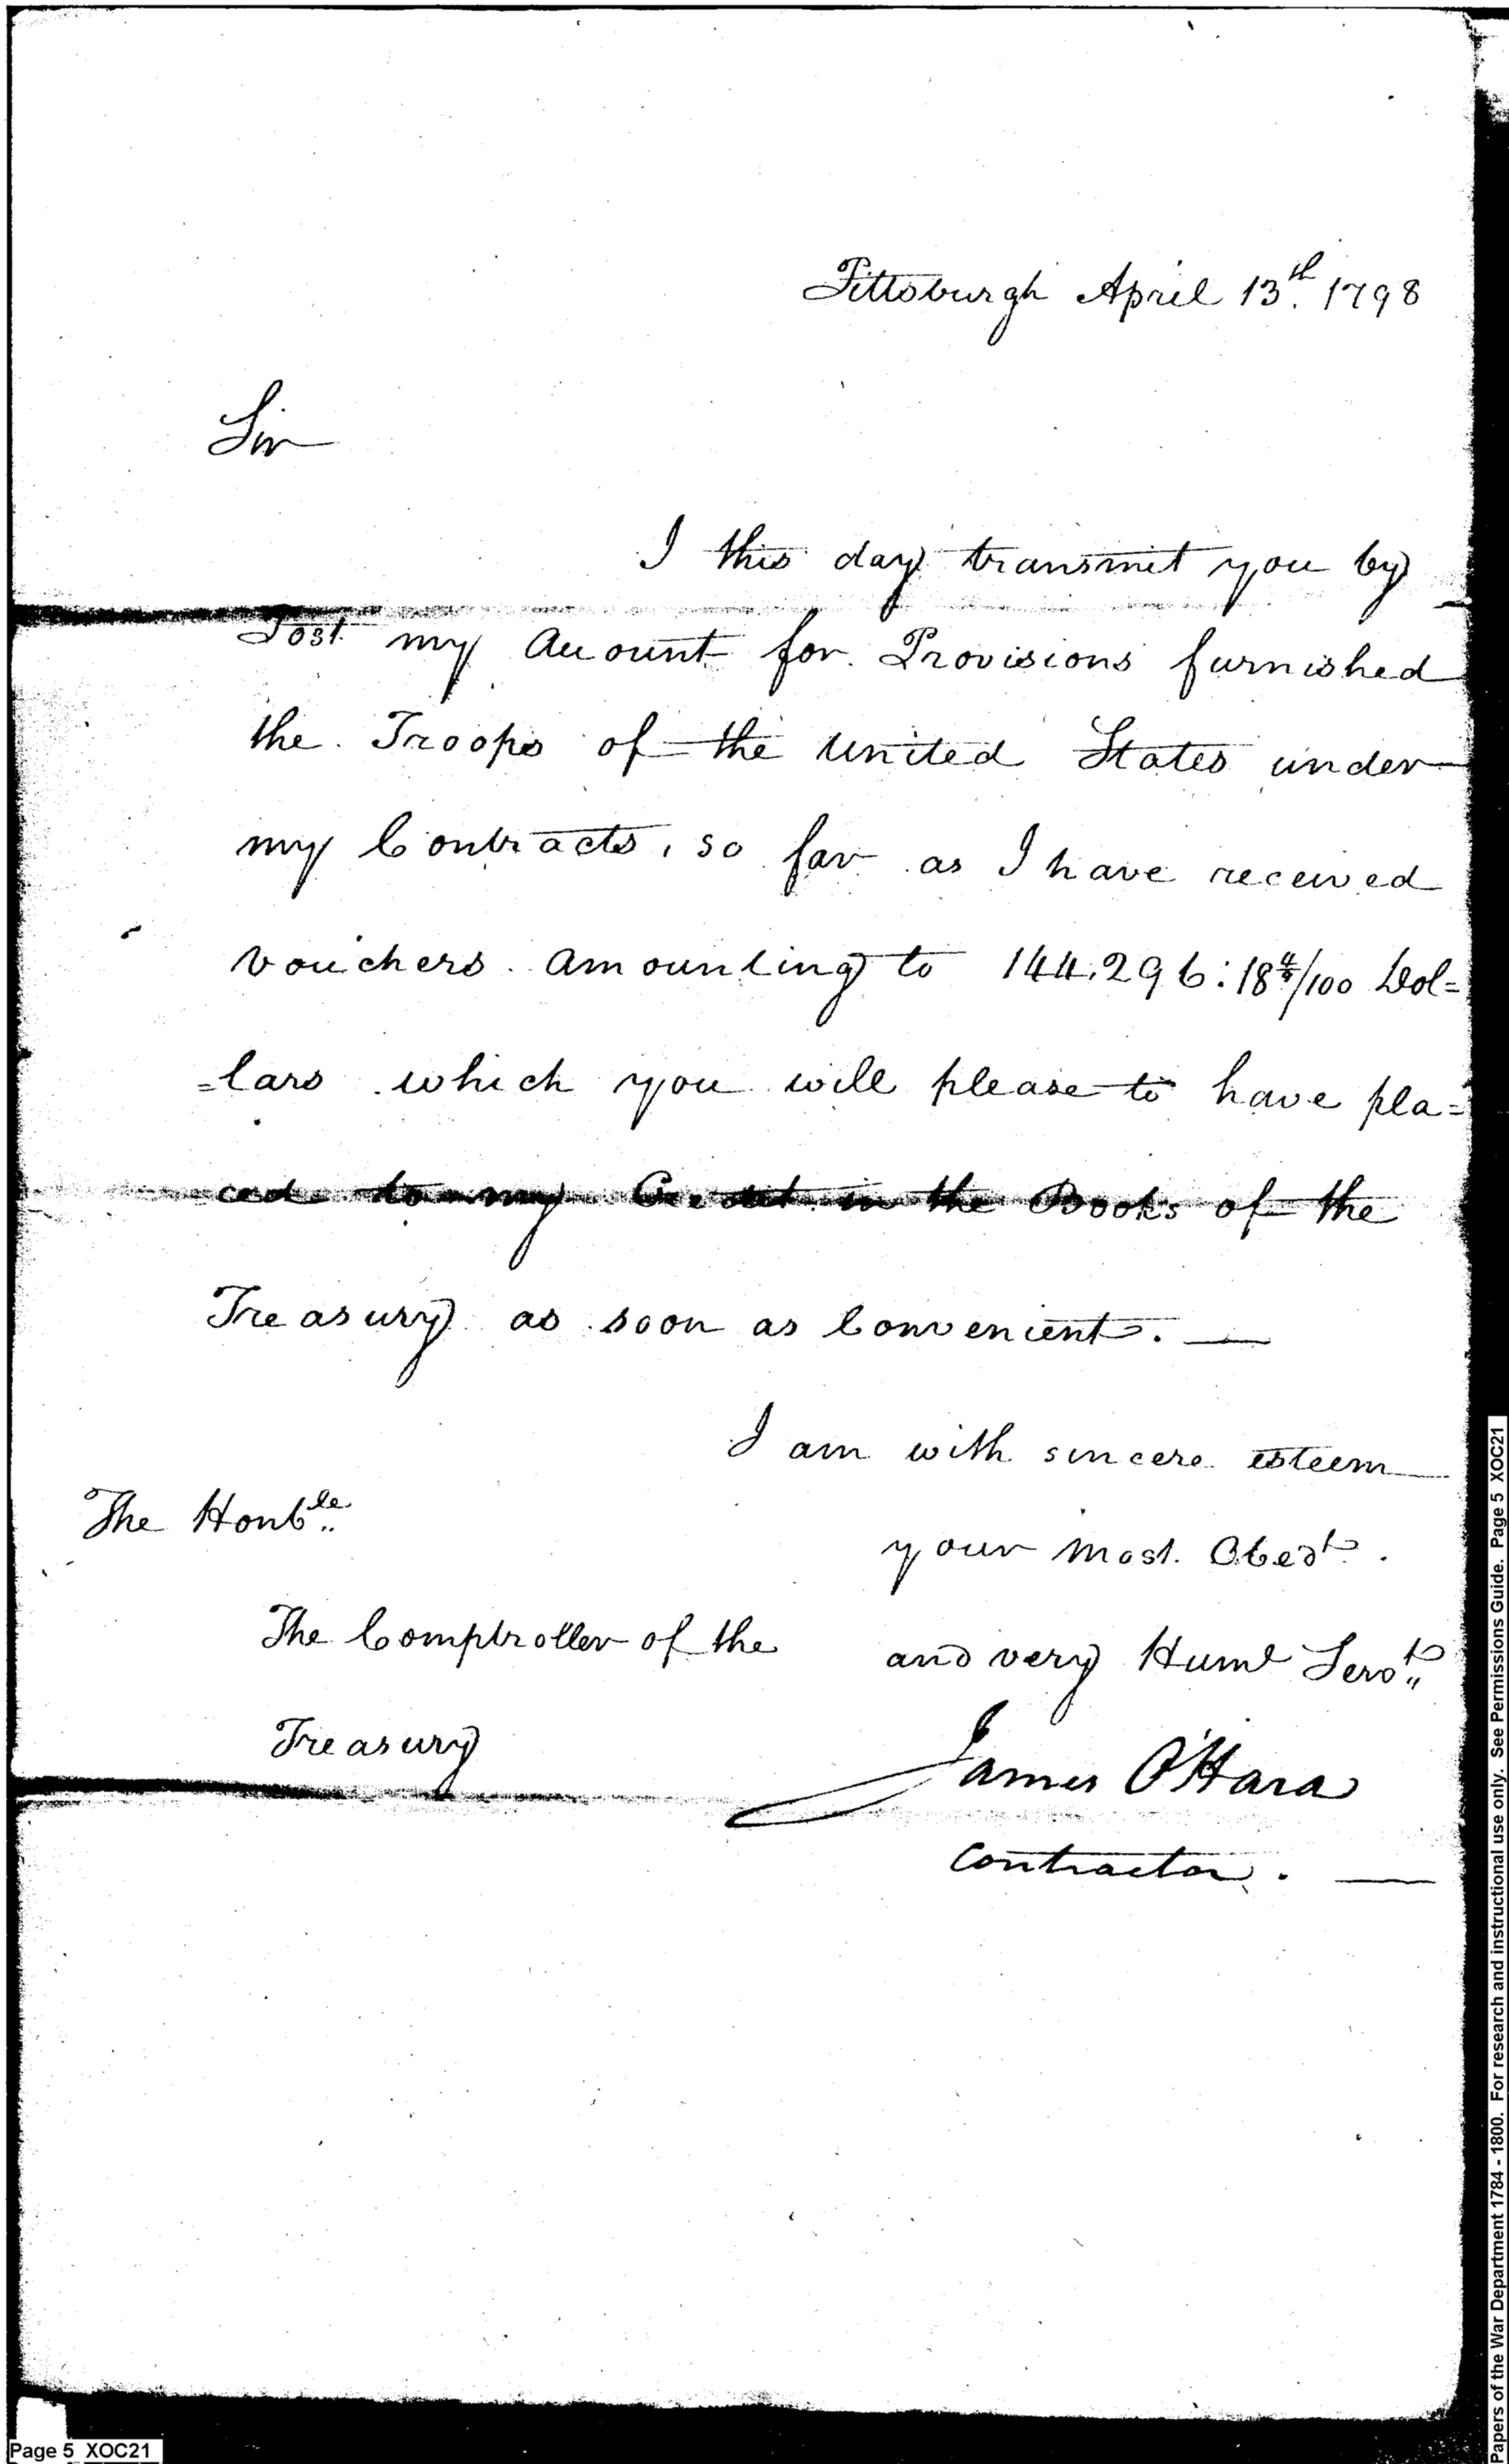 Pittsburgh April 13th. 1798
Sir
I this day transmit you by
Post my Account for Provisions furnished
the Troops of the United States under
my Contracts, so far as I have received
vouchers amounting to 144,296:18 4/5/100 Dol=
=lars which you will please to have pla=
ced to my Credit in the Books of the
Treasury as soon as Convenient. —
I am with sincere esteem
your most Obedt.
and very Huml Servt
The Honble
The Comptroller of the
Treasury
James O'Hara
Contractor. —
Page 5 XOC21
Papers of the War Department 1784 - 1800. For research and instructional use only. See Permissions Guide. Page 5 XOC21